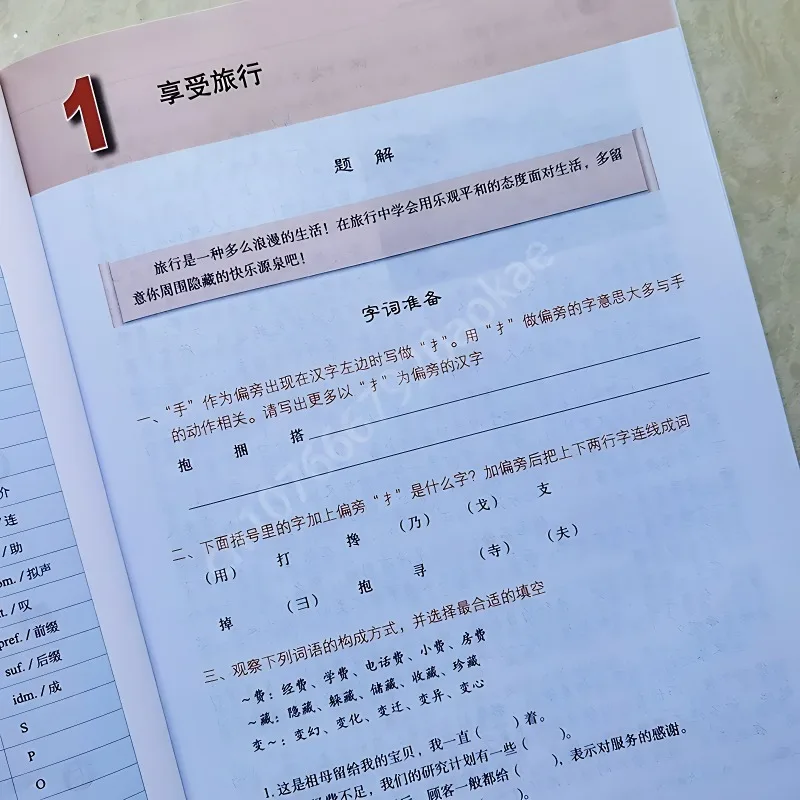 1
享受旅行
题 解
旅行是一种多么浪漫的生活！在旅行中学会用乐观平和的态度面对生活，多留
意你周围隐藏的快乐源泉吧！
字词准备
一、“手”作为偏旁出现在汉字左边时写做“扌”。用“扌”做偏旁的字意思大多与手
的动作相关。请写出更多以“扌”为偏旁的汉字
抱 捆 搭
二、下面括号里的字加上偏旁“扌”是什么字？加偏旁后把上下两行字连线成词
（用） 打 搀 （乃） （戈） 支
掉 （彐） 抱 寻 （寺） （夫）
三、观察下列词语的构成方式，并选择最合适的填空
～费：经费、学费、电话费、小费、房费
～藏：隐藏、躲藏、储藏、收藏、珍藏
变～：变幻、变化、变迁、变异、变心
1. 这是祖母留给我的宝贝，我一直（ ）着。
费不足，我们的研究计划有一些（ ）。
顾客一般都给（ ），表示对服务的感谢。
介
/ 连
/ 助
om. / 拟声
t. / 叹
pref. / 前缀
suf. / 后缀
idm. / 成
S
P
O